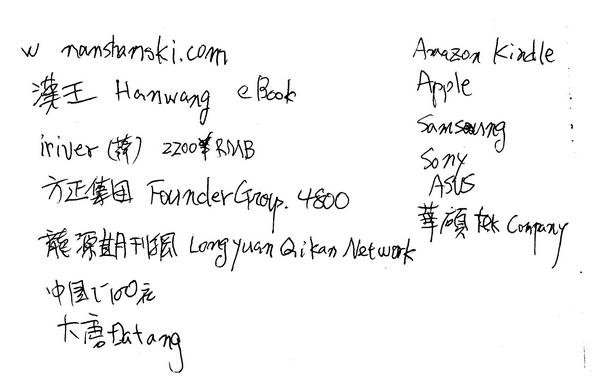 w nanshanski.com
漢王 Hanwang eBook
iriver (韓) 2200 RMB
方正集団 Founder Group. 4800
龍源期刊網 Longyuan Qikan Network
中国で100元
大唐 Datang
Amazon Kindle
Apple
Samsoung
Sony
ASUS
華碩 Company